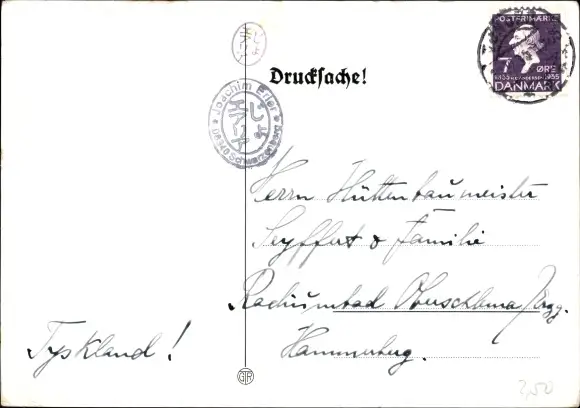 Drucksache!
POSTFRIMÆRKE
7 ØRE
1835 1935
DANMARK
Joachim Erler
Schwarzenberg
Herrn Hüttenbaumeister
Seyffert & Familie
Radiumbad Oberschlema / Erzg.
Hammerberg.
Tyskland!
GTR
2,50